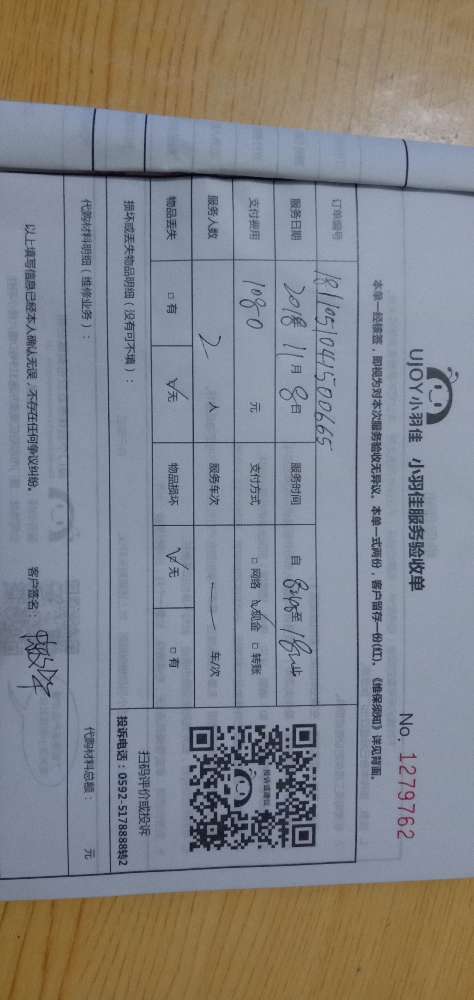 UJOY小羽佳 小羽佳服务验收单
No. 1279762
本单一经核签，即视为对本次服务验收无异议。本单一式两份，客户留存一份(红)。《维保须知》详见背面。
订单编号 1811051041500665
服务日期 2018年11月8日 服务时间 自 至
支付费用 1080 元 支付方式 □网络 ☑现金 □转账
服务人数 2 人 服务车次 一 车/次
物品丢失 □有 ☑无 物品损坏 ☑无 □有
投诉或建议
扫码评价或投诉
投诉电话：0592-5178888转2
损坏或丢失物品明细（没有可不填）：
代购材料明细（维修业务）： 代购材料总额： 元
以上填写信息已经本人确认无误，不存在任何争议纠纷。 客户签名：